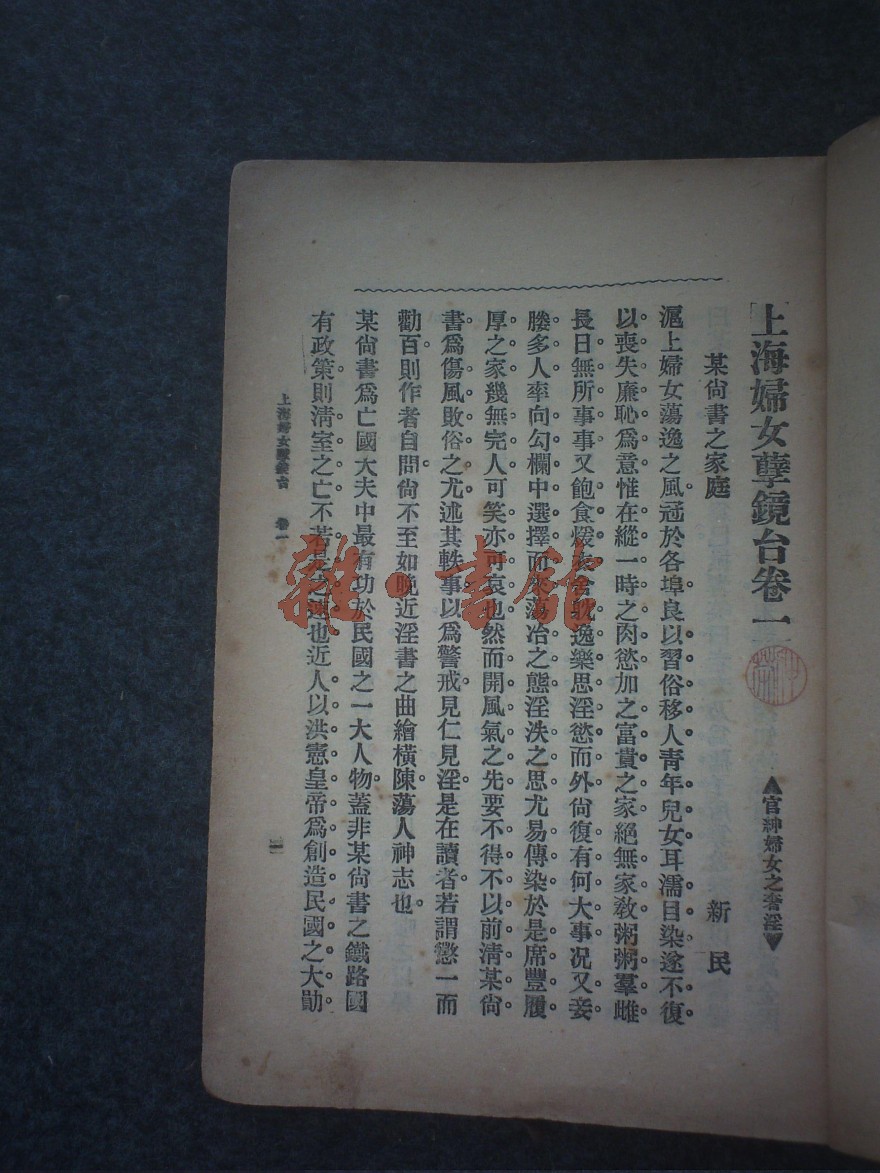 上海婦女孽鏡台卷一
▲官紳婦女之奢淫▼
某尙書之家庭
新民
滬上婦女蕩逸之風冠於各埠良以習俗移人靑年兒女耳濡目染遂不復
以喪失廉恥爲意惟在縱一時之肉慾加之富貴之家絕無家敎粥粥羣雌
長日無所事事又飽食煖衣舍耽逸樂思淫慾而外尙復有何大事况又妾
媵多人率向勾欄中選擇而來蕩冶之態淫泆之思尤易傳染於是席豐履
厚之家幾無完人可笑亦可哀也然而開風氣之先要不得不以前淸某尙
書爲傷風敗俗之尤述其軼事以爲警戒見仁見淫是在讀者若謂懲一而
勸百則作者自問尙不至如晚近淫書之曲繪橫陳蕩人神志也
某尙書爲亡國大夫中最有功於民國之一大人物蓋非某尙書之鐵路國
有政策則淸室之亡不若是之速也近人以洪憲皇帝爲創造民國之大勛
上海婦女孽鏡台 卷一
雜·書館